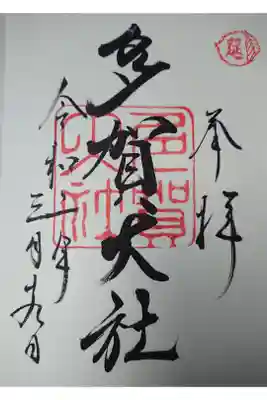 奉拝
多賀大社
多賀大社
令和 年三月 日